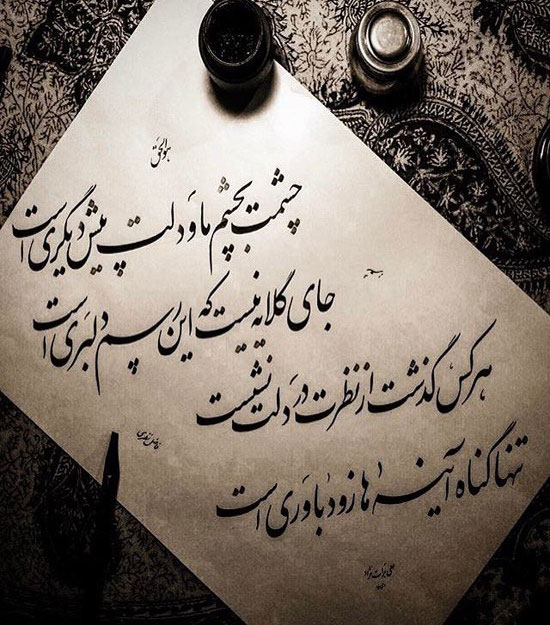 هوالحق
چشمت بچشم ما و دلت پیش دیگری است
جای گلایه نیست که این رسم دلبری است
هر کس گذشت از نظرت در دلت نشست
تنها گناه آینه ها زود باوری است
فاضل نظری